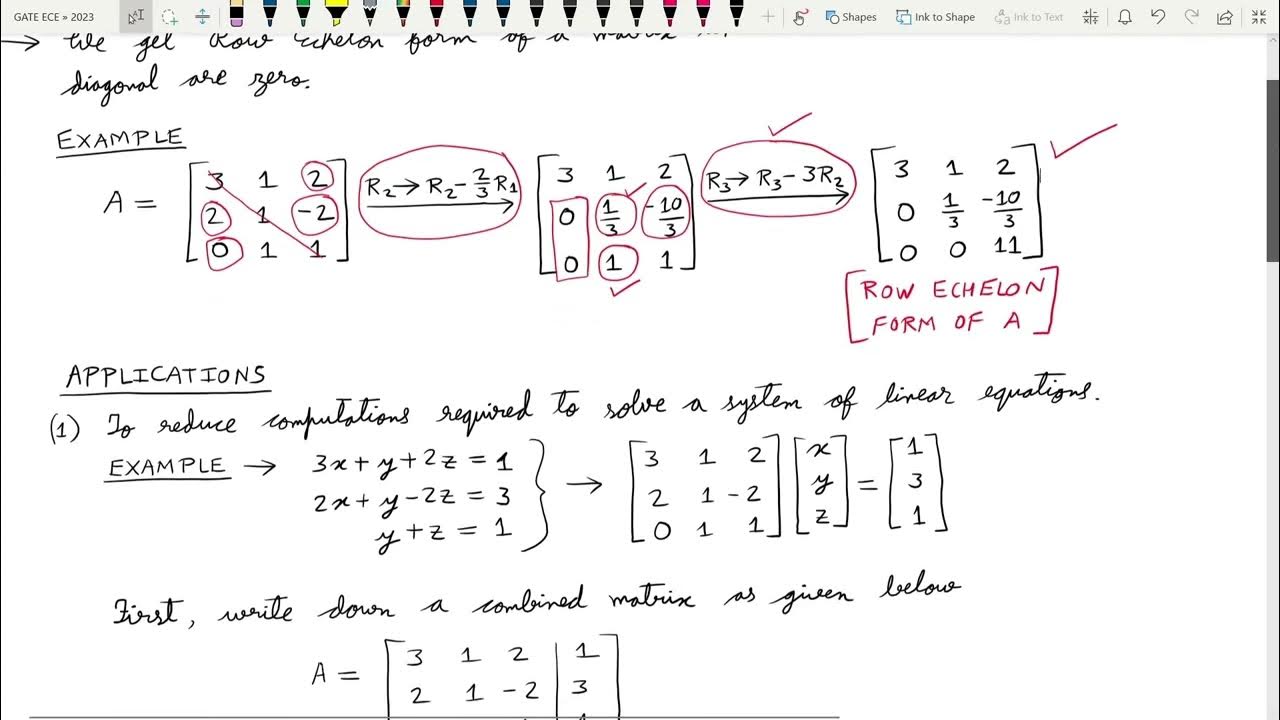 GATE ECE » 2023
Shapes Ink to Shape Ink to Text
→ We get Row Echelon form of a matrix
diagonal are zero.
EXAMPLE
A = [3 1 2; 2 1 -2; 0 1 1] R2 → R2 - 2/3 R1 [3 1 2; 0 1/3 -10/3; 0 1 1] R3 → R3 - 3R2 [3 1 2; 0 1/3 -10/3; 0 0 11]
[ROW ECHELON
FORM OF A]
APPLICATIONS
(1) To reduce computations required to solve a system of linear equations.
EXAMPLE → 3x + y + 2z = 1
2x + y - 2z = 3
y + z = 1
} → [3 1 2; 2 1 -2; 0 1 1] [x; y; z] = [1; 3; 1]
First, write down a combined matrix as given below
A = [3 1 2 | 1
2 1 -2 | 3